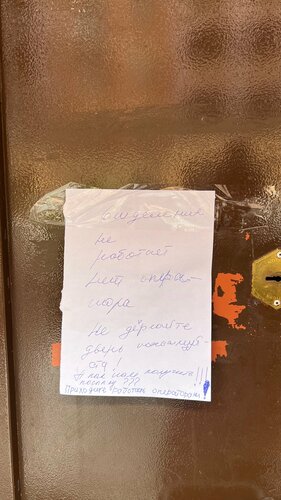 отделение
не
работает
нет опера-
тора
Не дёргайте
дверь пожалуй-
ста!
А как нам получить
посылку ??? !!!
Приходите работать оператором